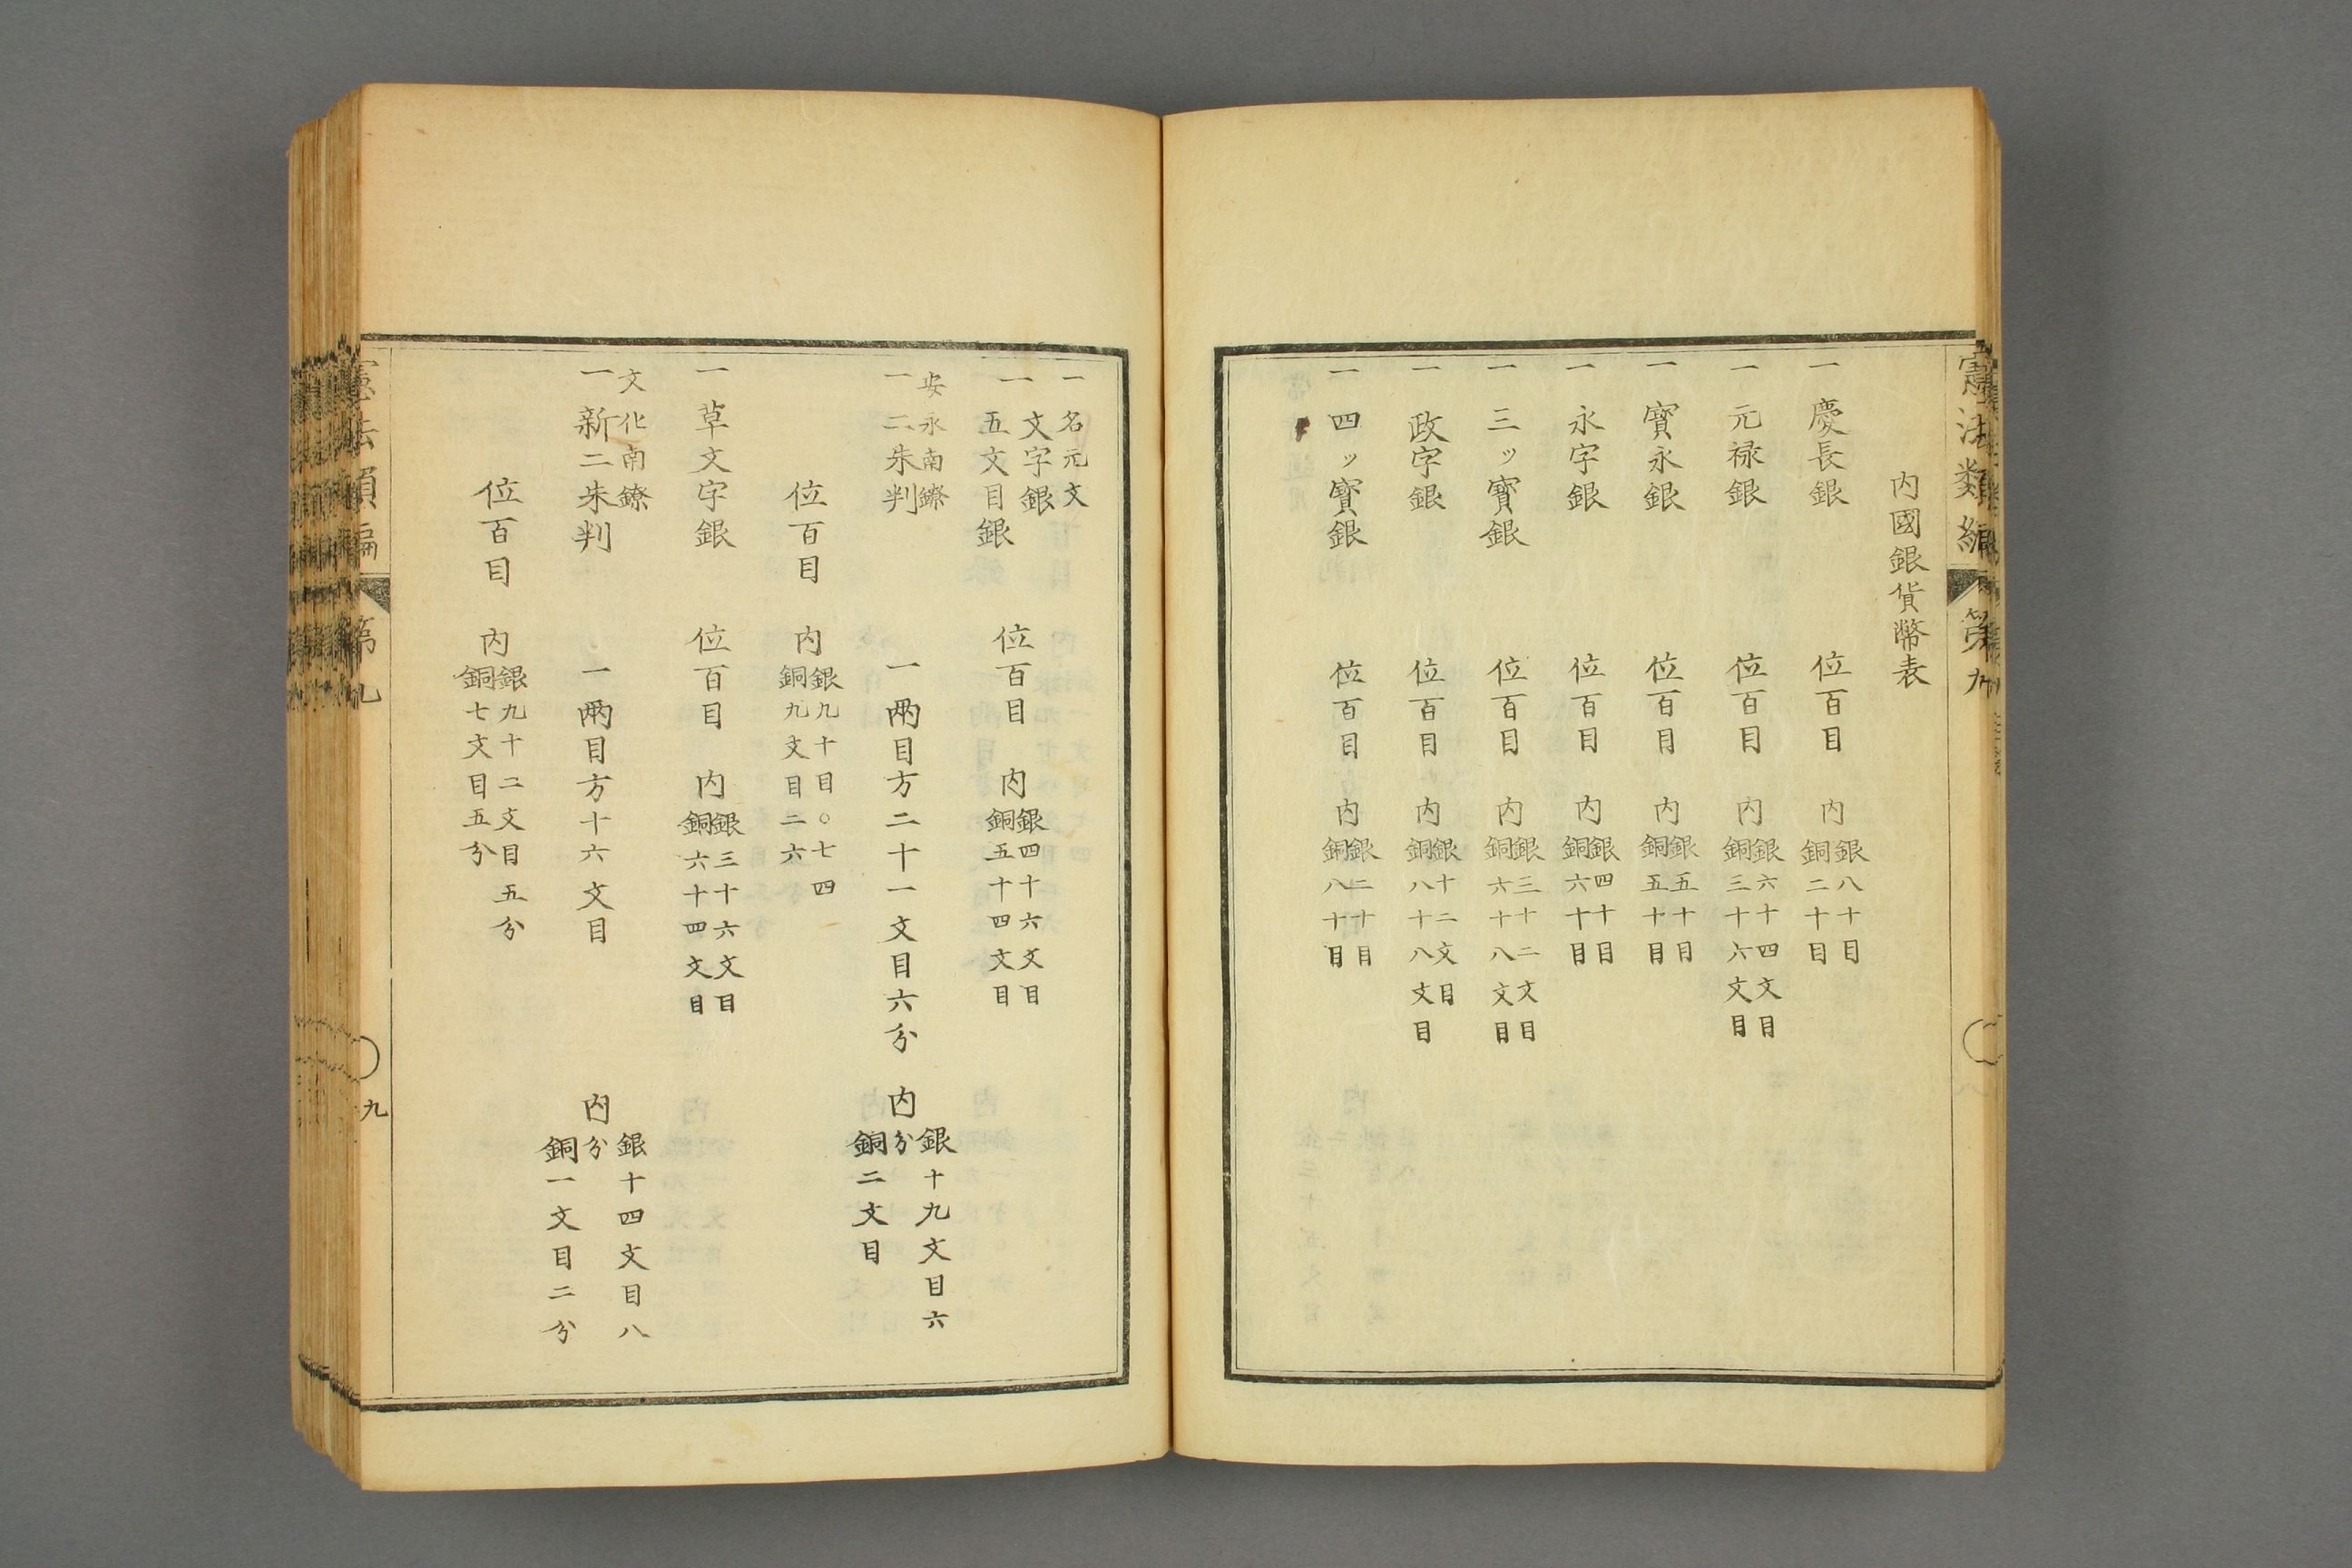 憲法類編 第九
内國銀貨幣表
一 慶長銀 位百目 内 銀八十目 銅二十目
一 元禄銀 位百目 内 銀六十四文目 銅三十六文目
一 寳永銀 位百目 内 銀五十目 銅五十目
一 永字銀 位百目 内 銀四十目 銅六十目
一 三ッ寳銀 位百目 内 銀三十二文目 銅六十八文目
一 政字銀 位百目 内 銀十二文目 銅八十八文目
一 四ッ寳銀 位百目 内 銀二十目 銅八十目
一 名元文
一 文字銀 五文目銀 位百目 内 銀四十六文目 銅五十四文目
安永南鐐
一 二朱判 一兩目方二十一文目六分 内分 銀十九文目六 銅二文目
位百目 内 銀九十目〇七四 銅九文目二六
一 草文字銀 位百目 内 銀三十六文目 銅六十四文目
文化南鐐
一 新二朱判 一兩目方十六文目 内分 銀十四文目八 銅一文目二分
位百目 内 銀九十二文目五分 銅七文目五分
憲法類編 第九 九